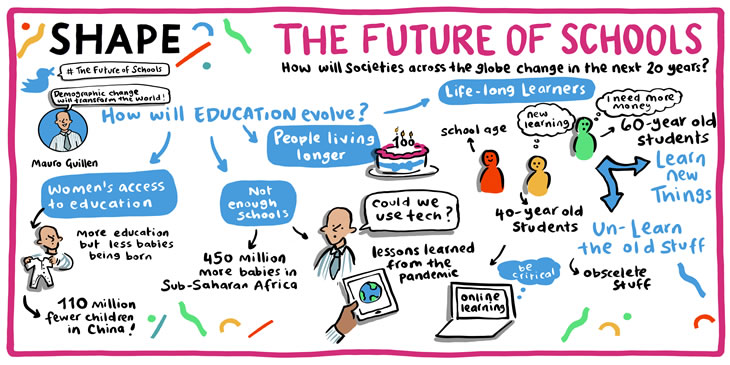 SHAPE
THE FUTURE OF SCHOOLS
How will societies across the globe change in the next 20 years?
# The Future of Schools
Demographic change
will transform the world!
Mauro Guillen
How will EDUCATION evolve?
Life-long Learners
People living
longer
100
Women's access
to education
more education
but less babies
being born
110 million
fewer children
in China!
Not
enough
schools
450 million
more babies in
Sub-Saharan Africa
Could we
use tech?
lessons learned
from the
pandemic
online
learning
be
critical
school age
new
learning
I need more
money
60-year old
students
40-year old
Students
Learn
new
Things
Un-Learn
the old stuff
obscelete
stuff